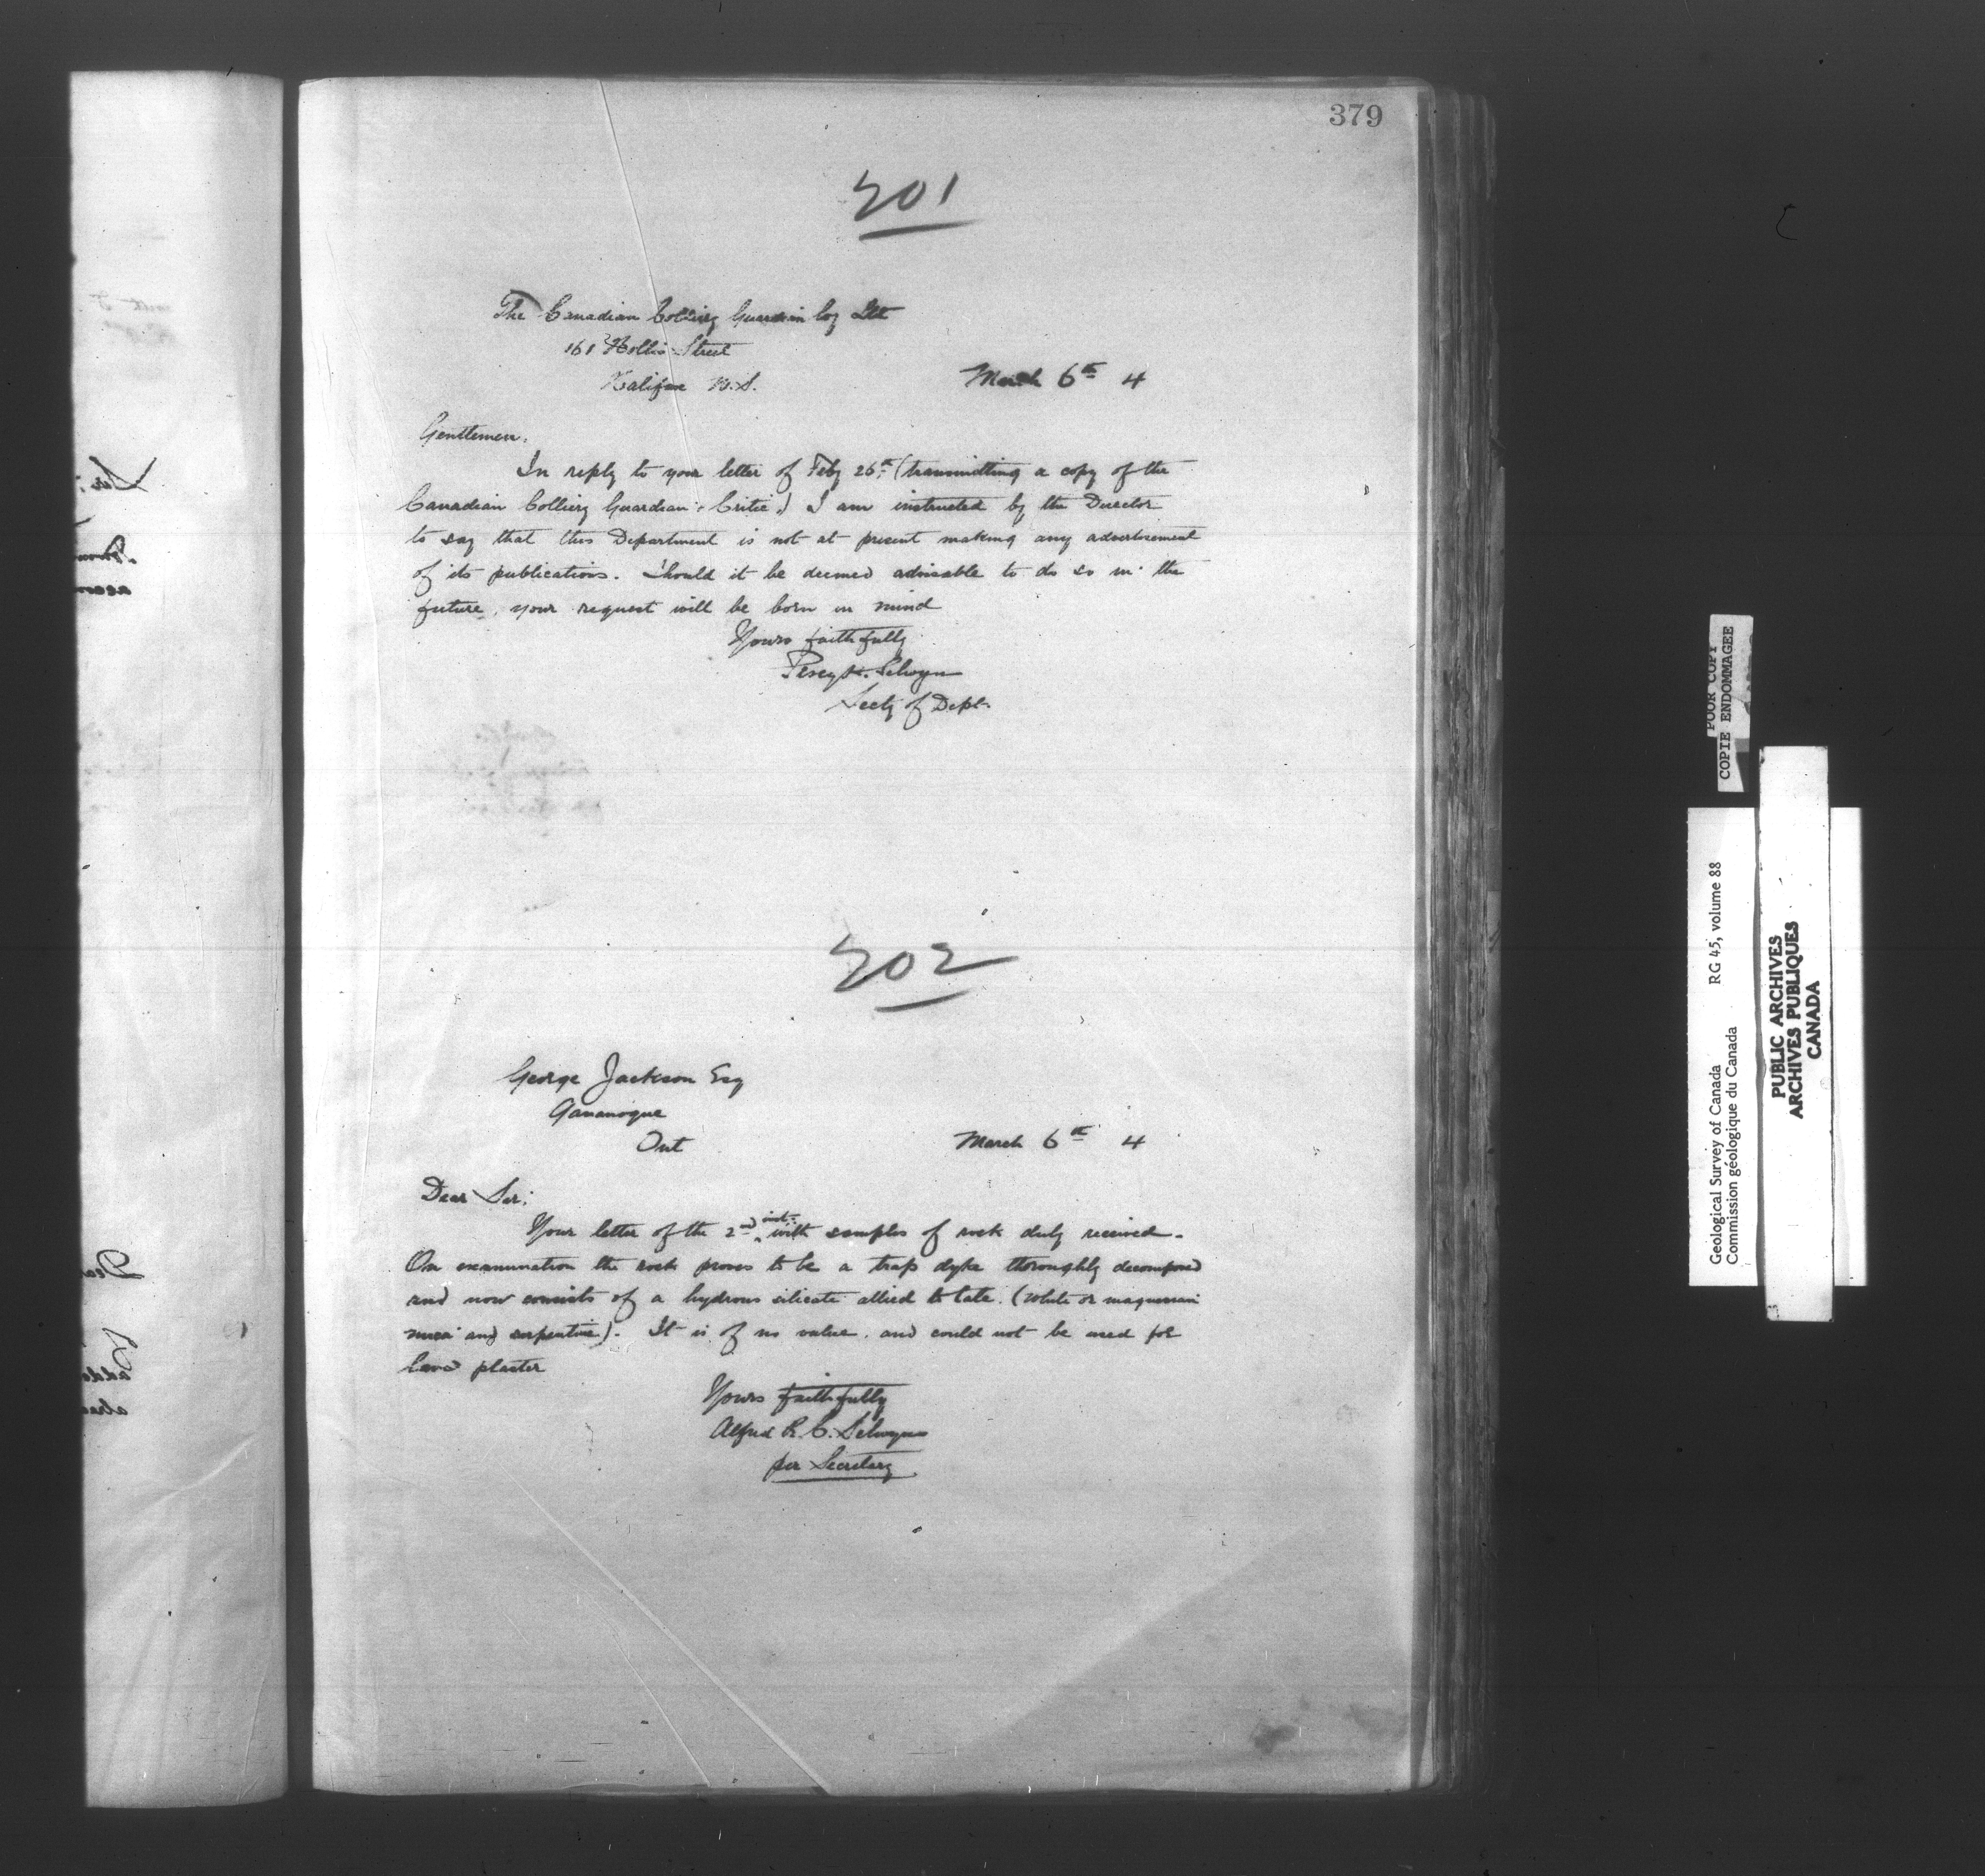 379
201
The Canadian Colliery Guardian Coy Ltd
161 Hollis Street
Halifax N.S.
March 6th 4
Gentlemen,
In reply to your letter of Feby 26th (transmitting a copy of the
Canadian Colliery Guardian & Critic,) I am instructed by the Director
to say that this Department is not at present making any advertisement
of its publications. Should it be deemed advisable to do so in the
future, your request will be born in mind
Yours faithfully
Percy H. Selwyn
Secty of Dept.
202
George Jackson Esq
Gananoque
Ont
March 6th 4
Dear Sir:
Your letter of the 2nd inst. with samples of rock duly received.
On examination the rock proves to be a trap dyke thoroughly decomposed
and now consists of a hydrous silicate allied to talc. (White or magnesian
mica and serpentine). It is of no value, and could not be used for
land plaster
Yours faithfully
Alfred R. C. Selwyn
per Secretary
POOR COPY
COPIE ENDOMMAGEE
Geological Survey of Canada RG 45, volume 88
Commission géologique du Canada
PUBLIC ARCHIVES
ARCHIVES PUBLIQUES
CANADA